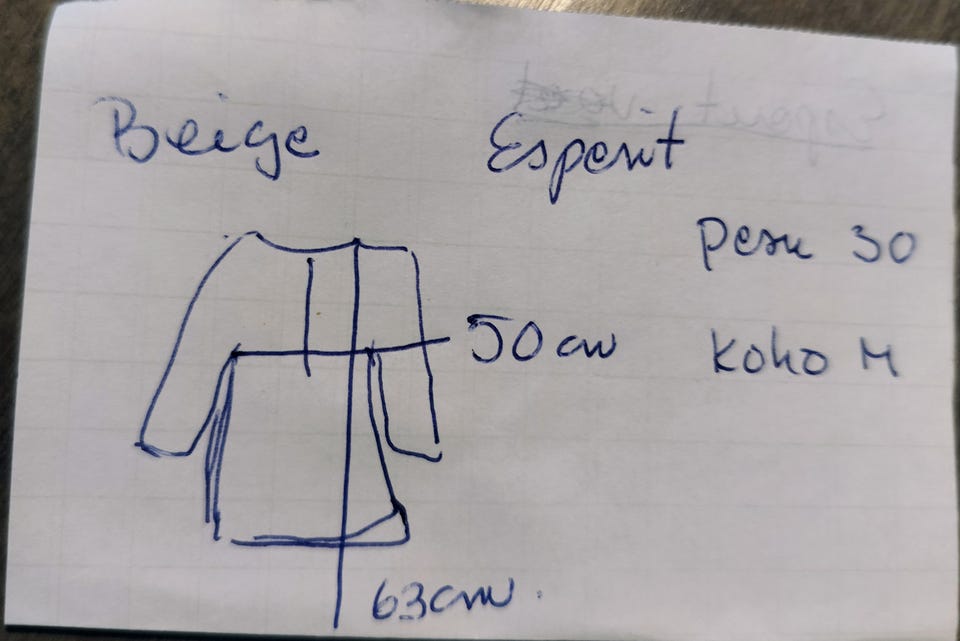 Beige
Esperit
pesu 30
50 cm
koko M
63 cm.